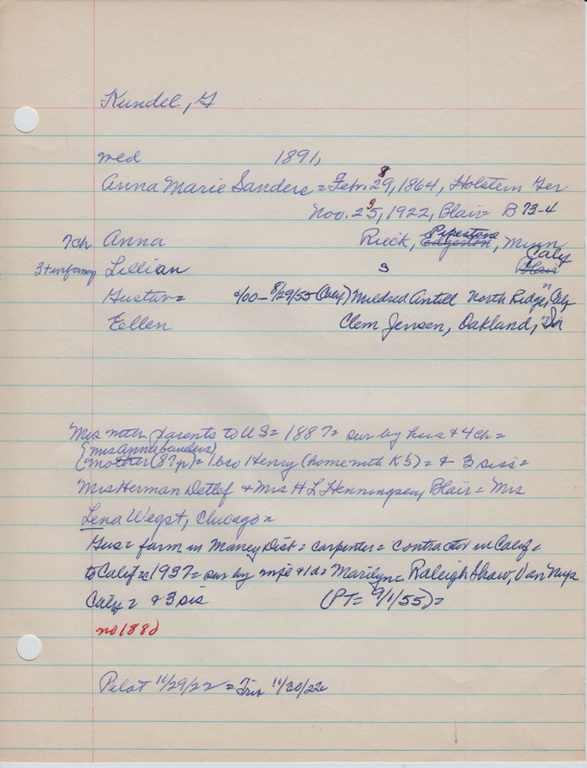 Kundel, G
wed 1891,
8
Anna Marie Sanders = Feb. 29, 1864, Holstein Ger
Nov. 25, 1922, Blair = B 73-4
Pipestone
7ch Anna Rieck, Edgerton, Minn
Caly
3 + infancy Lillian s Blair
Gustav = 0/00 - 8/29/55 (Caly) Mildred Antill North Ridge, Caly
Ellen Clem Jensen, Oakland,
Mrs with parents to US = 1887 = sur by hus & 4 ch =
(Mrs Anna Sanders)
(mother (87 yr) = 1 bro Henry (home with Ks) = & 3 siss =
Mrs Herman Detlef & Mrs H L Henningsen, Blair = Mrs
Lena Wegst, Chicago =
Gus = farm in Maney Dist = carpenter = contractor in Calif =
to Calif = 1937 = sur by wife & 1 d = Marilyn = Raleigh Shaw, Van Nuys
Caly = & 3 sis (PT = 9/1/55) =
no 1880
Pilot 11/29/22 = Trib 11/30/22